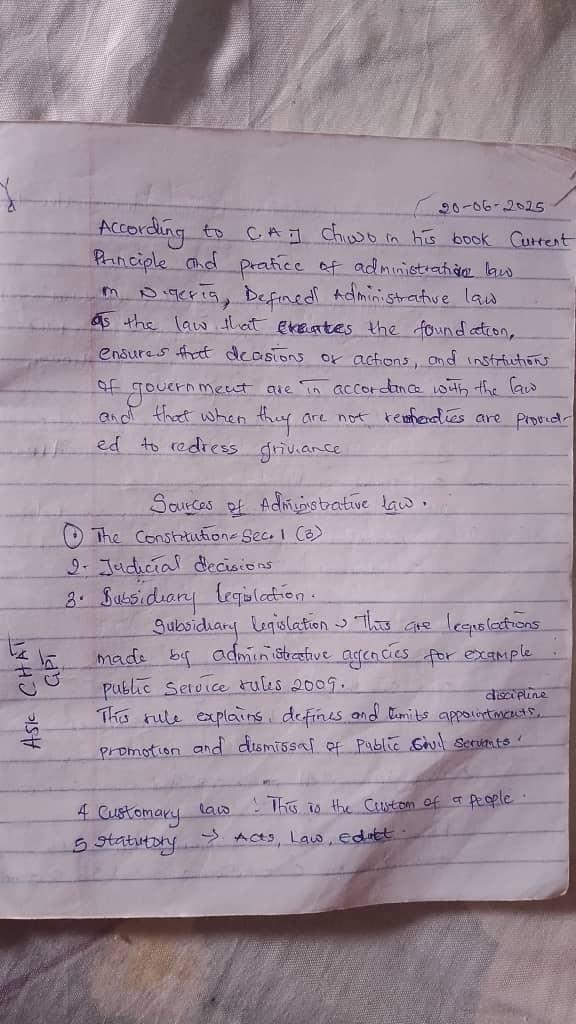 20-06-2025
According to C.A.J Chiwo in his book Current
Principle and pratice of administrative law
in Nigeria, Defined Administrative law
as the law that creates the foundation,
ensures that decisions or actions, and institutions
of government are in accordance with the law
and that when they are not remedies are provid-
ed to redress griviance
Sources of Administrative law.
① The Constitution = Sec. 1 (3)
2. Judicial decisions
3. Subsidiary legislation.
Subsidiary legislation → This are legislations
made by administrative agencies for example :
public Service rules 2009.
discipline
This rule explains, defines and limits appointments,
promotion and dismissal of Public Civil Servants.
ASK CHAT
GPT
4 Customary law : This is the Custom of a people.
5 Statutory → Acts, Law, edict.